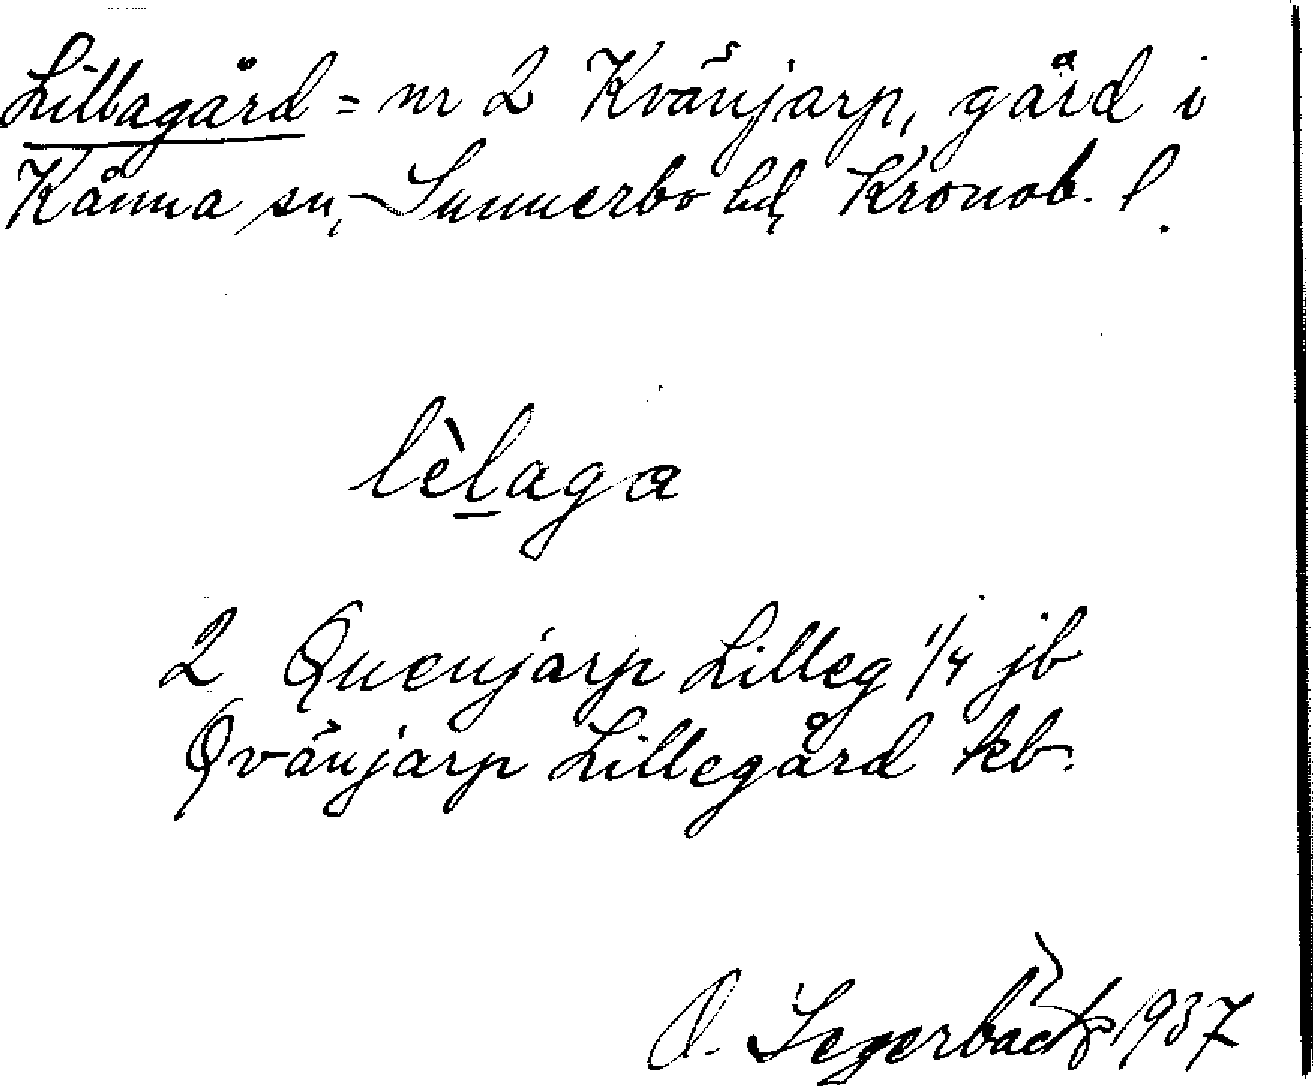 Lillagård = nr 2 Kvänjarp, gård i
Kånna sn, Sunnerbo hd, Kronob. l.
lèlaga
2 Quenjarp Lilleg 1/4 jb
Qvänjarp Lillegård kb.
O. Segerbäck 1937